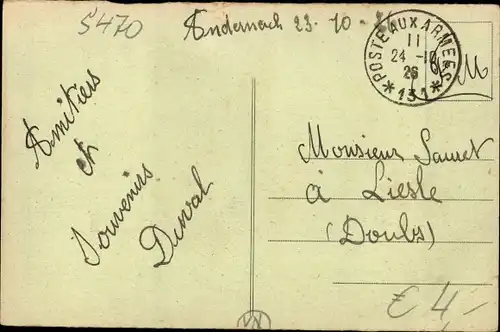 5470
Andernach 23-10-26
POSTE AUX ARMEES
11
24-10
26
*131*
F M
Amitiés
et
Souvenirs
Duval
Monsieur Sauret
à Liesle
(Doubs)
€ 4,-
VN